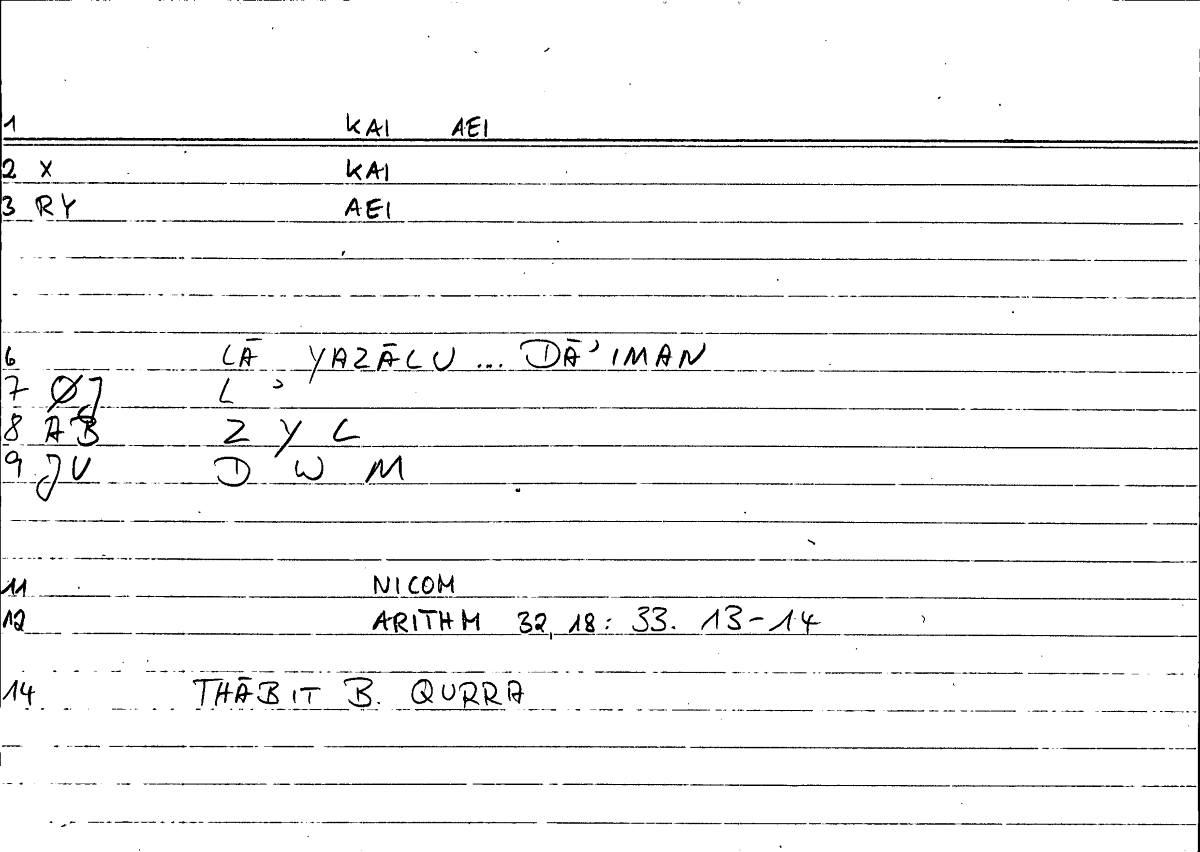 1 KAI AEI
2 X KAI
3 RY AEI
6 LĀ YAZĀLU ... DĀʾIMAN
7 ØJ L ʾ
8 AB Z Y L
9 JU D W M
11 NICOM
12 ARITHM 32, 18 : 33. 13-14
14 THĀBIT B. QURRA